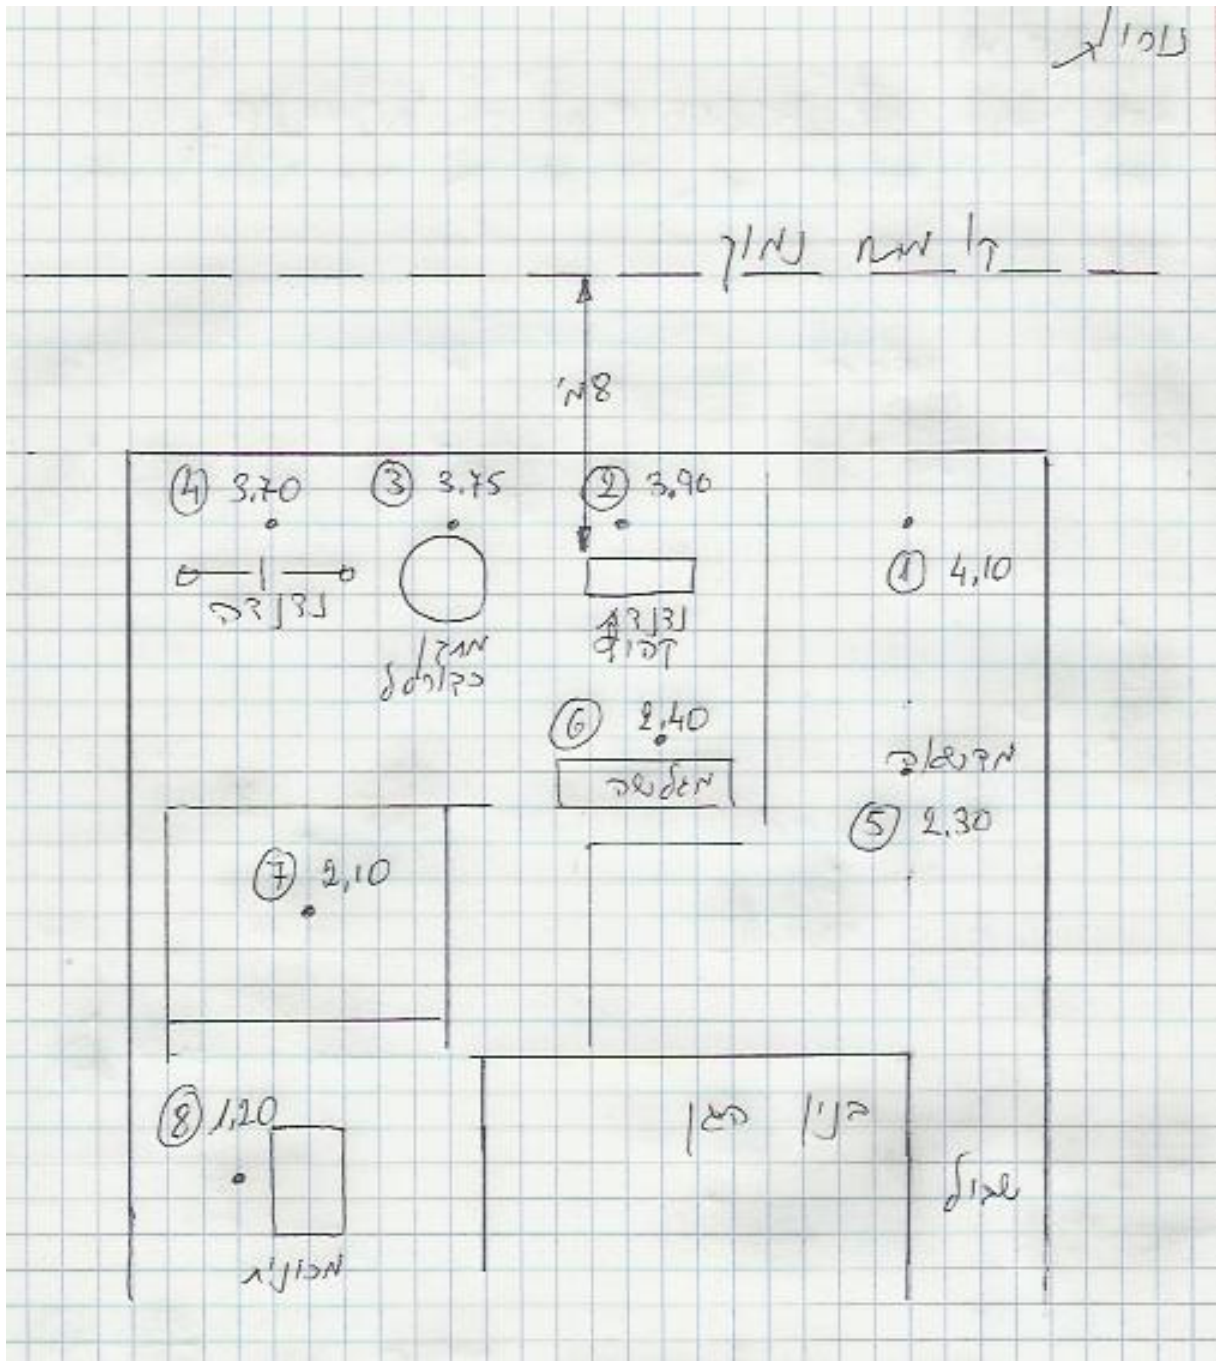 קו מתח נמוך
8 מ'
④ 3.70
③ 3.75
② 3.90
① 4.10
נדנדה
מתקן
נדנדת
קפיץ
⑥ 2.40
מגלשה
מדשאה
⑤ 2.30
⑦ 2.10
⑧ 1.20
מכונית
בנין הגן
שביל